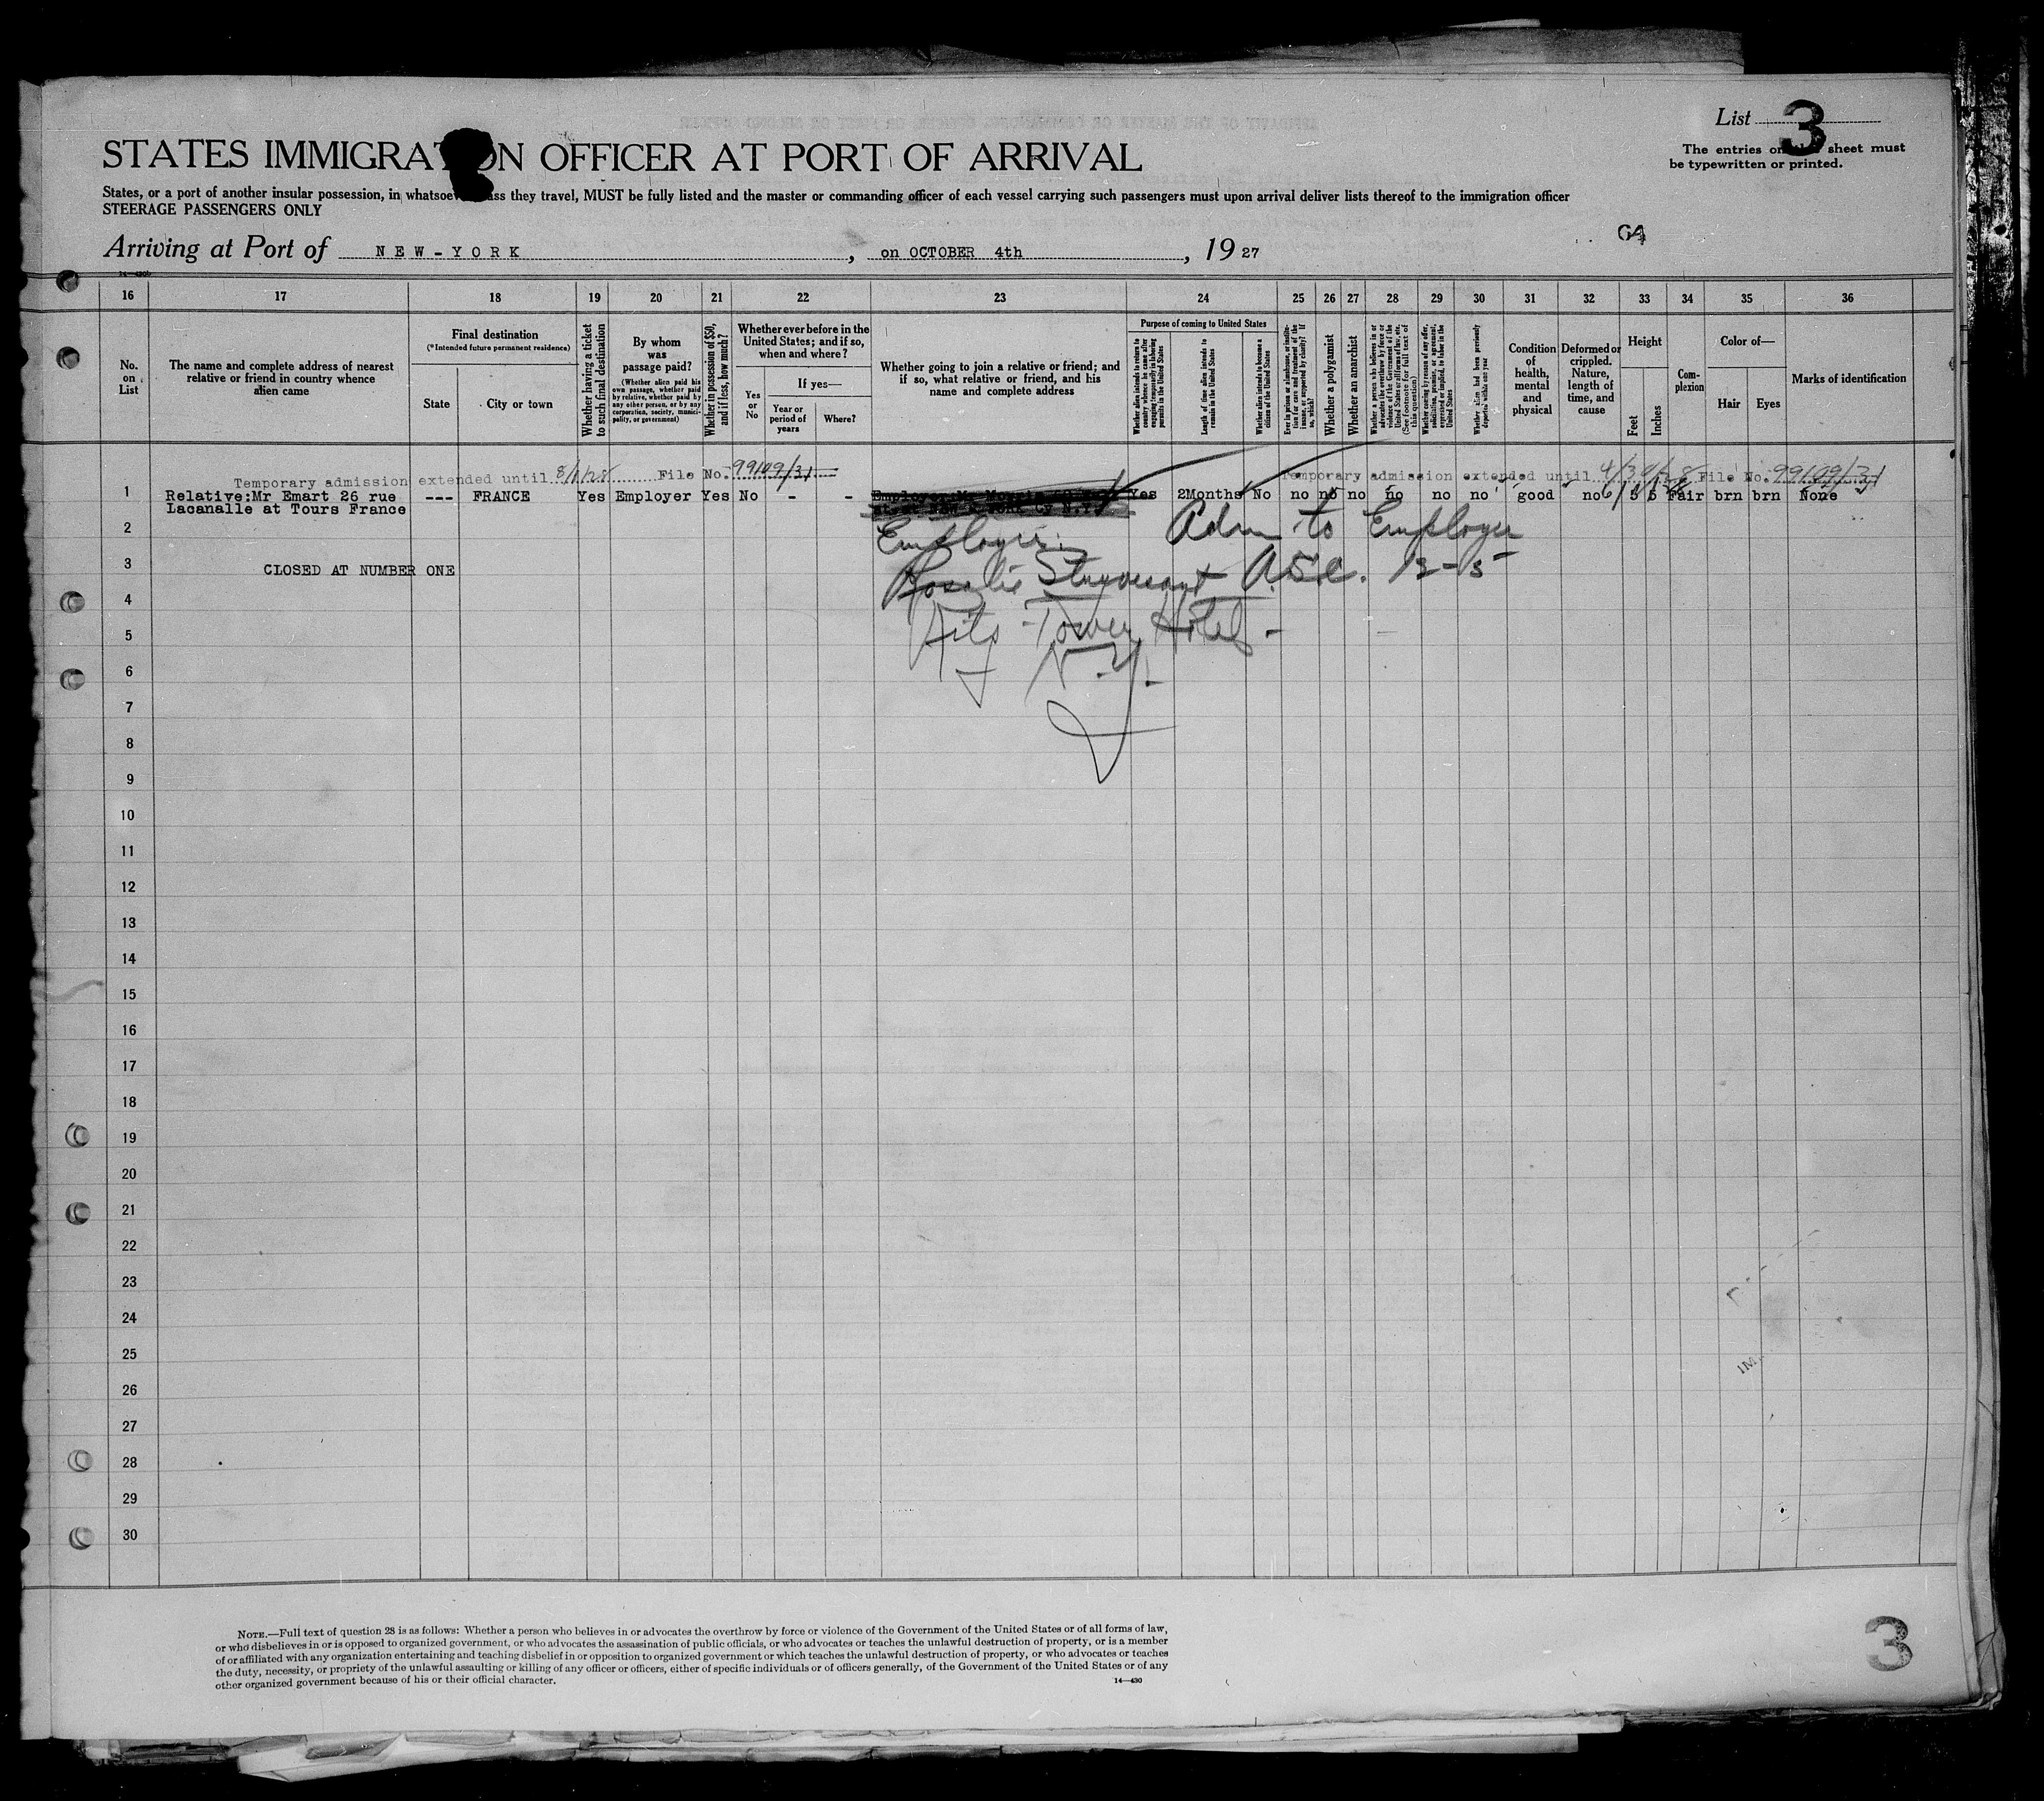 List 3
The entries on sheet must
be typewritten or printed.
STATES IMMIGRA N OFFICER AT PORT OF ARRIVAL
States, or a port of another insular possession, in whatsoev ass they travel, MUST be fully listed and the master or commanding officer of each vessel carrying such passengers must upon arrival deliver lists thereof to the immigration officer
STEERAGE PASSENGERS ONLY
Arriving at Port of NEW-YORK, on OCTOBER 4th, 19 27
16 17 18 19 20 21 22 23 24 25 26 27 28 29 30 31 32 33 34 35 36
No. on List
The name and complete address of nearest relative or friend in country whence alien came
Final destination
(*Intended future permanent residence)
State
City or town
Whether having a ticket to such final destination
By whom was passage paid?
(Whether alien paid his own passage, whether paid by relative, whether paid by any other person, or by any corporation, society, municipality, or government)
Whether in possession of $50, and if less, how much?
Whether ever before in the United States; and if so, when and where?
Yes or No
If yes—
Year or period of years
Where?
Whether going to join a relative or friend; and if so, what relative or friend, and his name and complete address
Purpose of coming to United States
Whether alien intends to return to country whence he came after engaging temporarily in laboring pursuits in the United States
Length of time alien intends to remain in the United States
Whether alien intends to become a citizen of the United States
Ever in prison or almshouse, or institution for care and treatment of the insane, or supported by charity? If so, which?
Whether a polygamist
Whether an anarchist
Whether a person who believes in or advocates the overthrow by force or violence of the Government of the United States or all forms of law, etc. (See footnote for full text of this question)
Whether coming by reason of any offer, solicitation, promise, or agreement, expressed or implied, to labor in the United States
Whether alien had been previously deported within one year
Condition of health, mental and physical
Deformed or crippled. Nature, length of time, and cause
Height
Feet
Inches
Complexion
Color of—
Hair
Eyes
Marks of identification
Temporary admission extended until File No. 99109/31 Temporary admission extended until 4/30/28 File No. 99109/31
1 Relative:Mr Emart 26 rue --- FRANCE Yes Employer Yes No - - Yes 2Months No no no no no no no good no 5 5 Fair brn brn None
Lacanalle at Tours France
2 Employer Adm to Employer
3 CLOSED AT NUMBER ONE Stuyvesant
4
5 Tower Hotel
6 N.Y.
7
8
9
10
11
12
13
14
15
16
17
18
19
20
21
22
23
24
25
26
27
28
29
30
NOTE.—Full text of question 28 is as follows: Whether a person who believes in or advocates the overthrow by force or violence of the Government of the United States or of all forms of law,
or who disbelieves in or is opposed to organized government, or who advocates the assassination of public officials, or who advocates or teaches the unlawful destruction of property, or is a member
of or affiliated with any organization entertaining and teaching disbelief in or opposition to organized government or which teaches the unlawful destruction of property, or who advocates or teaches
the duty, necessity, or propriety of the unlawful assaulting or killing of any officer or officers, either of specific individuals or of officers generally, of the Government of the United States or of any
other organized government because of his or their official character.
14—430
3